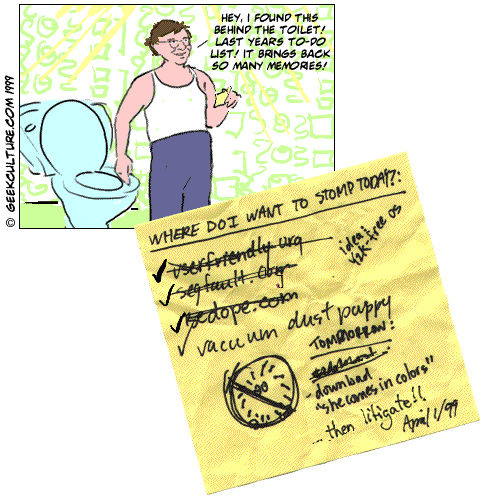 HEY, I FOUND THIS
BEHIND THE TOILET!
LAST YEARS TO-DO
LIST! IT BRINGS BACK
SO MANY MEMORIES!
© GEEKCULTURE.COM 1999
WHERE DO I WANT TO STOMP TODAY?:
userfriendly.org
segfault.org
sedope.com
vacuum dust puppy
idea:
Y2K-free OS
TOMORROW:
- download
"she comes in colors"
... then litigate!!
April 1/99